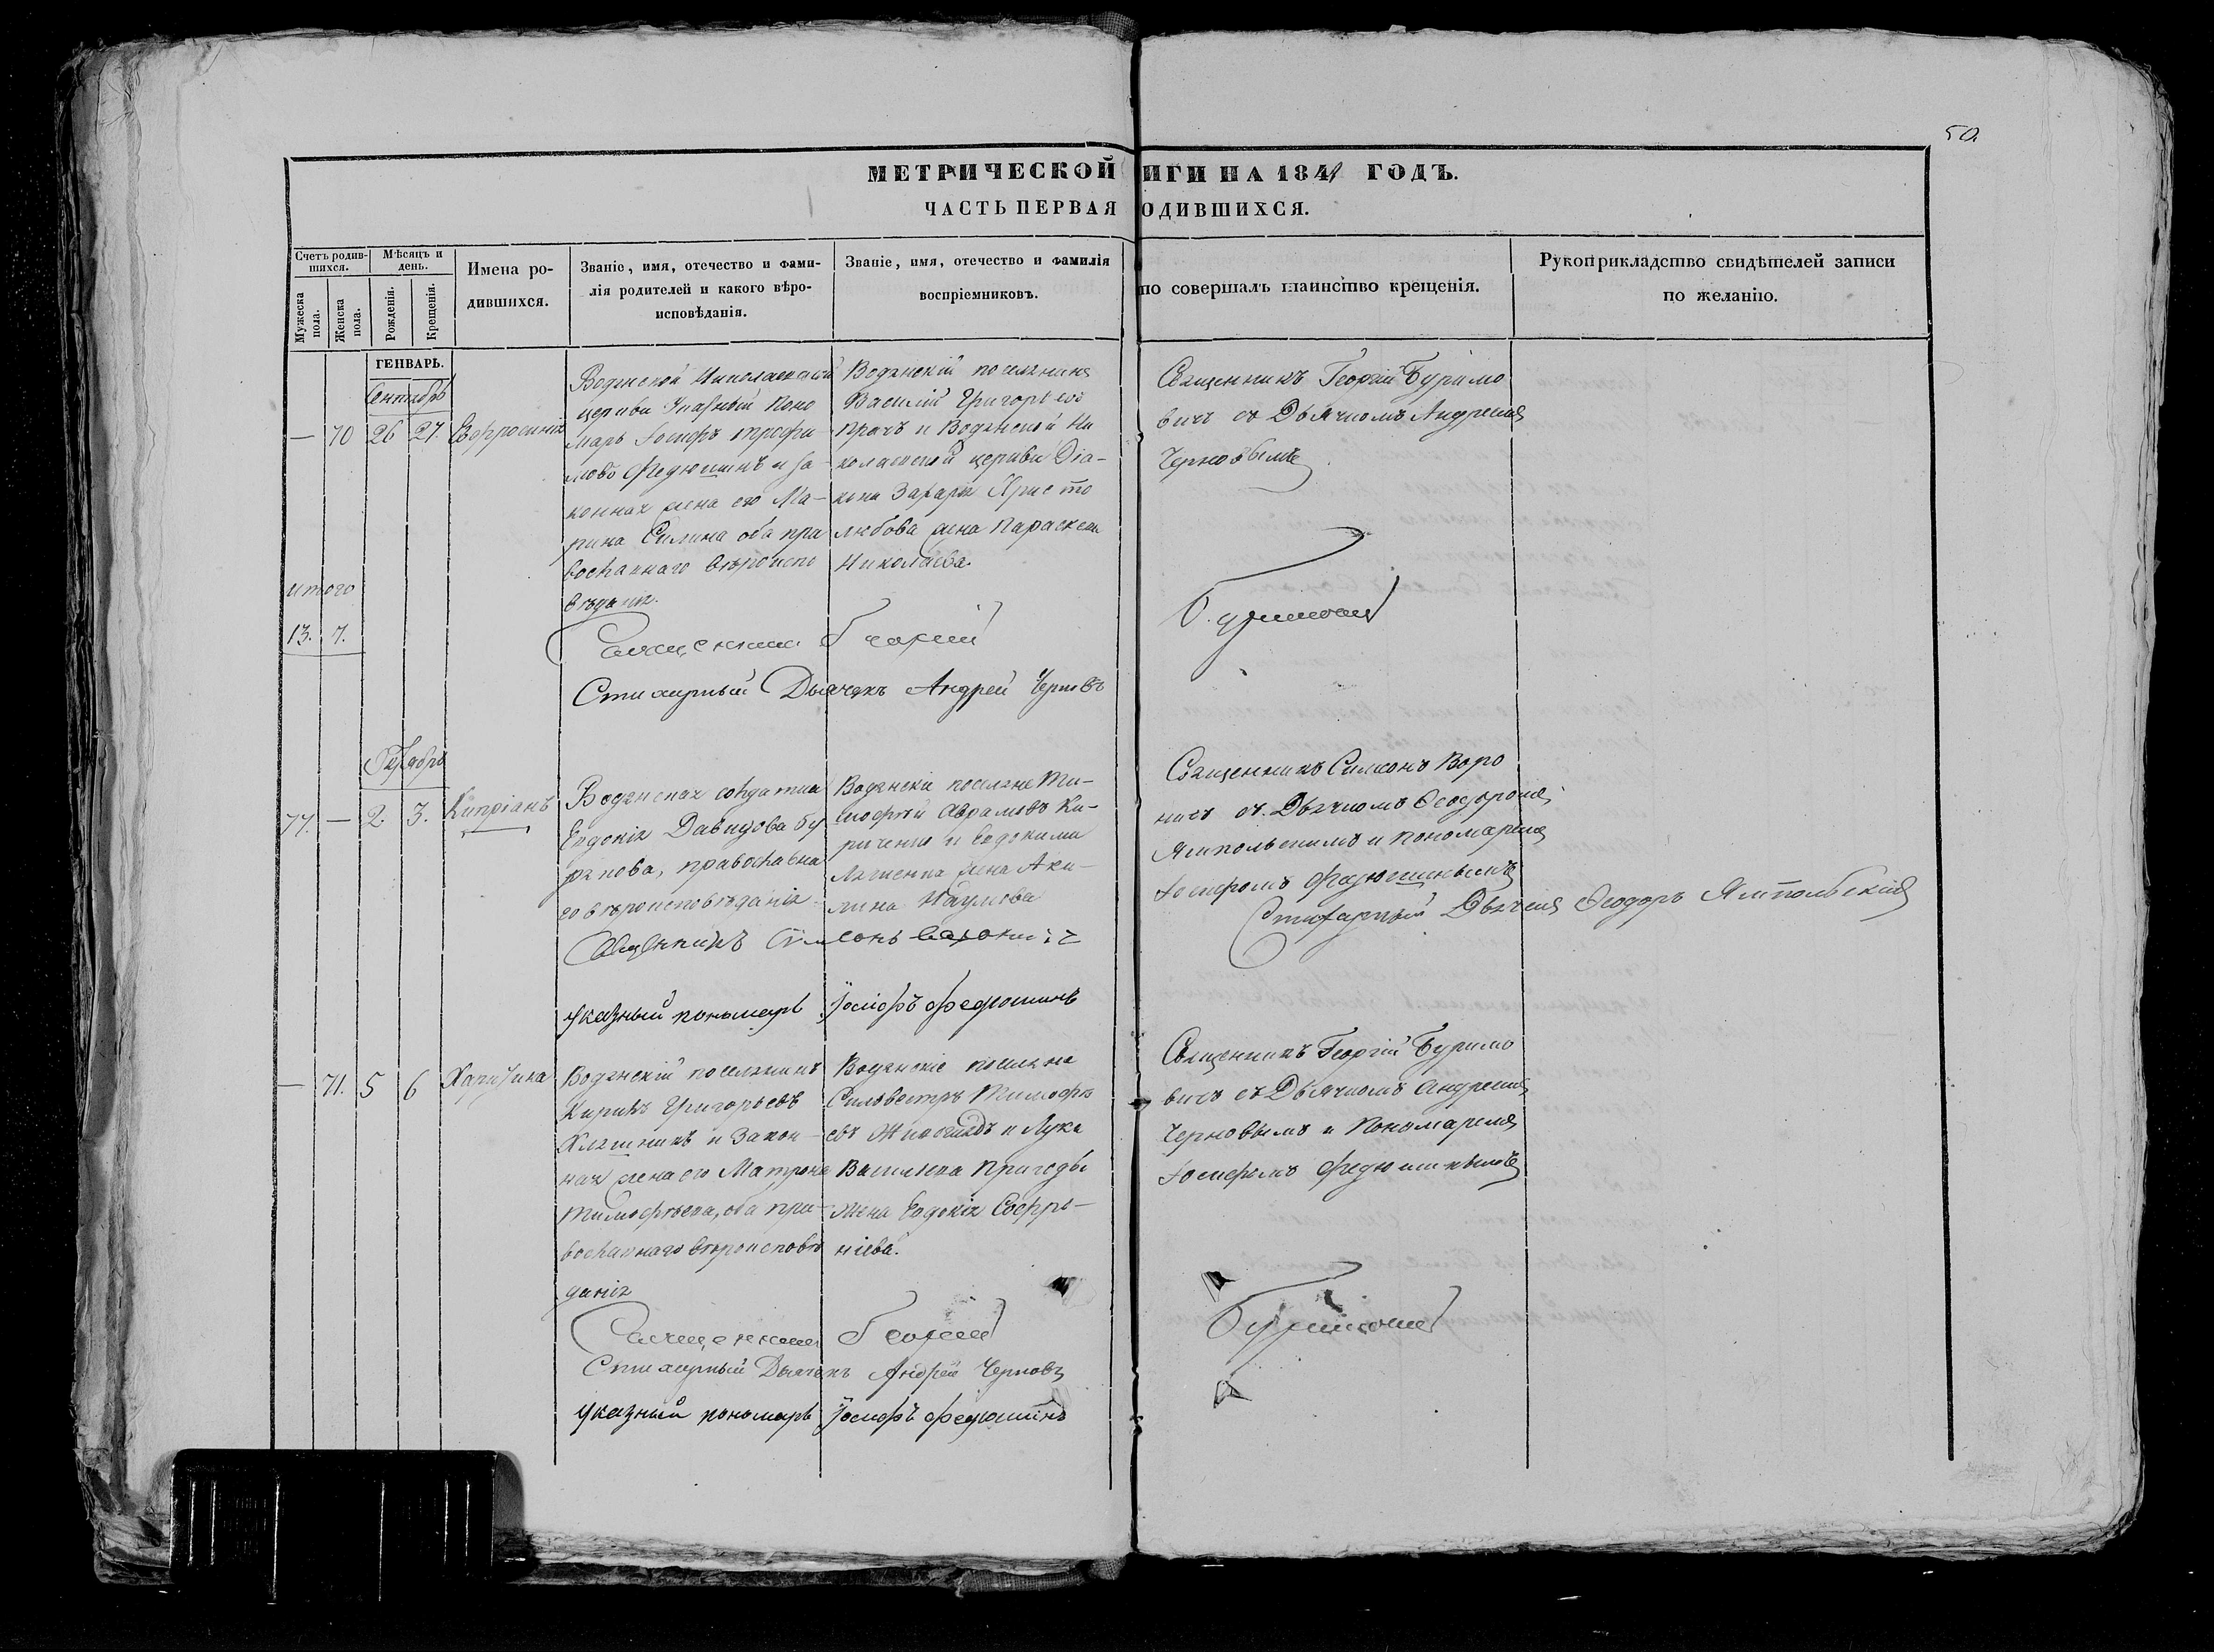 50.
МЕТРИЧЕСКОЙ ИГИ НА 1841 ГОДЪ.
ЧАСТЬ ПЕРВАЯ ОДИВШИХСЯ.
Счетъ родив-
шихся.
Мужеска пола.
Женска пола.
Мѣсяцъ и
день.
Рожденія.
Крещенія.
Имена ро-
дившихся.
Званіе, имя, отечество и фами-
лія родителей и какого вѣро-
исповѣданія.
Званіе, имя, отечество и фамилія
воспріемниковъ.
по совершалъ таинство крещенія.
Рукоприкладство свидѣтелей записи
по желанію.
ГЕНВАРЬ.
Сентябрь
— 70 26 27. Евфросинія
Водянской Николаевской
церкви Указный Поно
марь Іосифъ Трофи-
мовъ Федюшинъ и За-
конная жена его Ма-
рина Силина оба пра
вославнаго вѣроиспо
вѣданія.
Водянскій поселянинъ
Василій Григорьевъ
Прачъ и Водянской Ни
колаевской церкви Діа-
кона Захарія Христо
любова жена Параскева
Николаева.
Священникъ Георгій Буримо
вичъ съ Дьячкомъ Андреемъ
Черновымъ
итого
13. 7.
Священникъ Георгій Буримовичъ
Стихарный Дьячекъ Андрей Черновъ
Октябрь
77. — 2. 3. Кипріанъ
Водянская солдатка
Евдокія Давидова Бу
рякова, православна
го вѣроисповѣданія
Водянскіи поселяне Ти-
мофѣй Аврамовъ Ки-
риченко и Евдокима
жена Аки-
лина Наумова
Священникъ Симеонъ Воро
ничъ съ Дьячкомъ Ѳеодоромъ
Ямпольскимъ и Пономаремъ
Іосифомъ Федюшинымъ
Стихарный Дьячекъ Ѳеодоръ Ямпольскій
Священникъ Симеонъ
указный пономарь Іосифъ Федюшинъ
— 71. 5 6 Харитина
Водянскій поселянинъ
Кирикъ Григорьевъ
и Закон-
ная жена его Матрона
Тимофѣева, оба пра-
вославнаго вѣроисповѣ
данія
Водянскіе поселяне
Силвестръ Тимофѣ
евъ и Лука
Васильева Пригоды
жена Евдокія Софро-
ніева.
Священникъ Георгій Буримо
вичъ съ Дьячкомъ Андреемъ
Черновымъ и Пономаремъ
Іосифомъ Федюшинымъ
Священникъ Георгій Буримовичъ
Стихарный Дьячекъ Андрей Черновъ
указный пономарь Іосифъ Федюшинъ